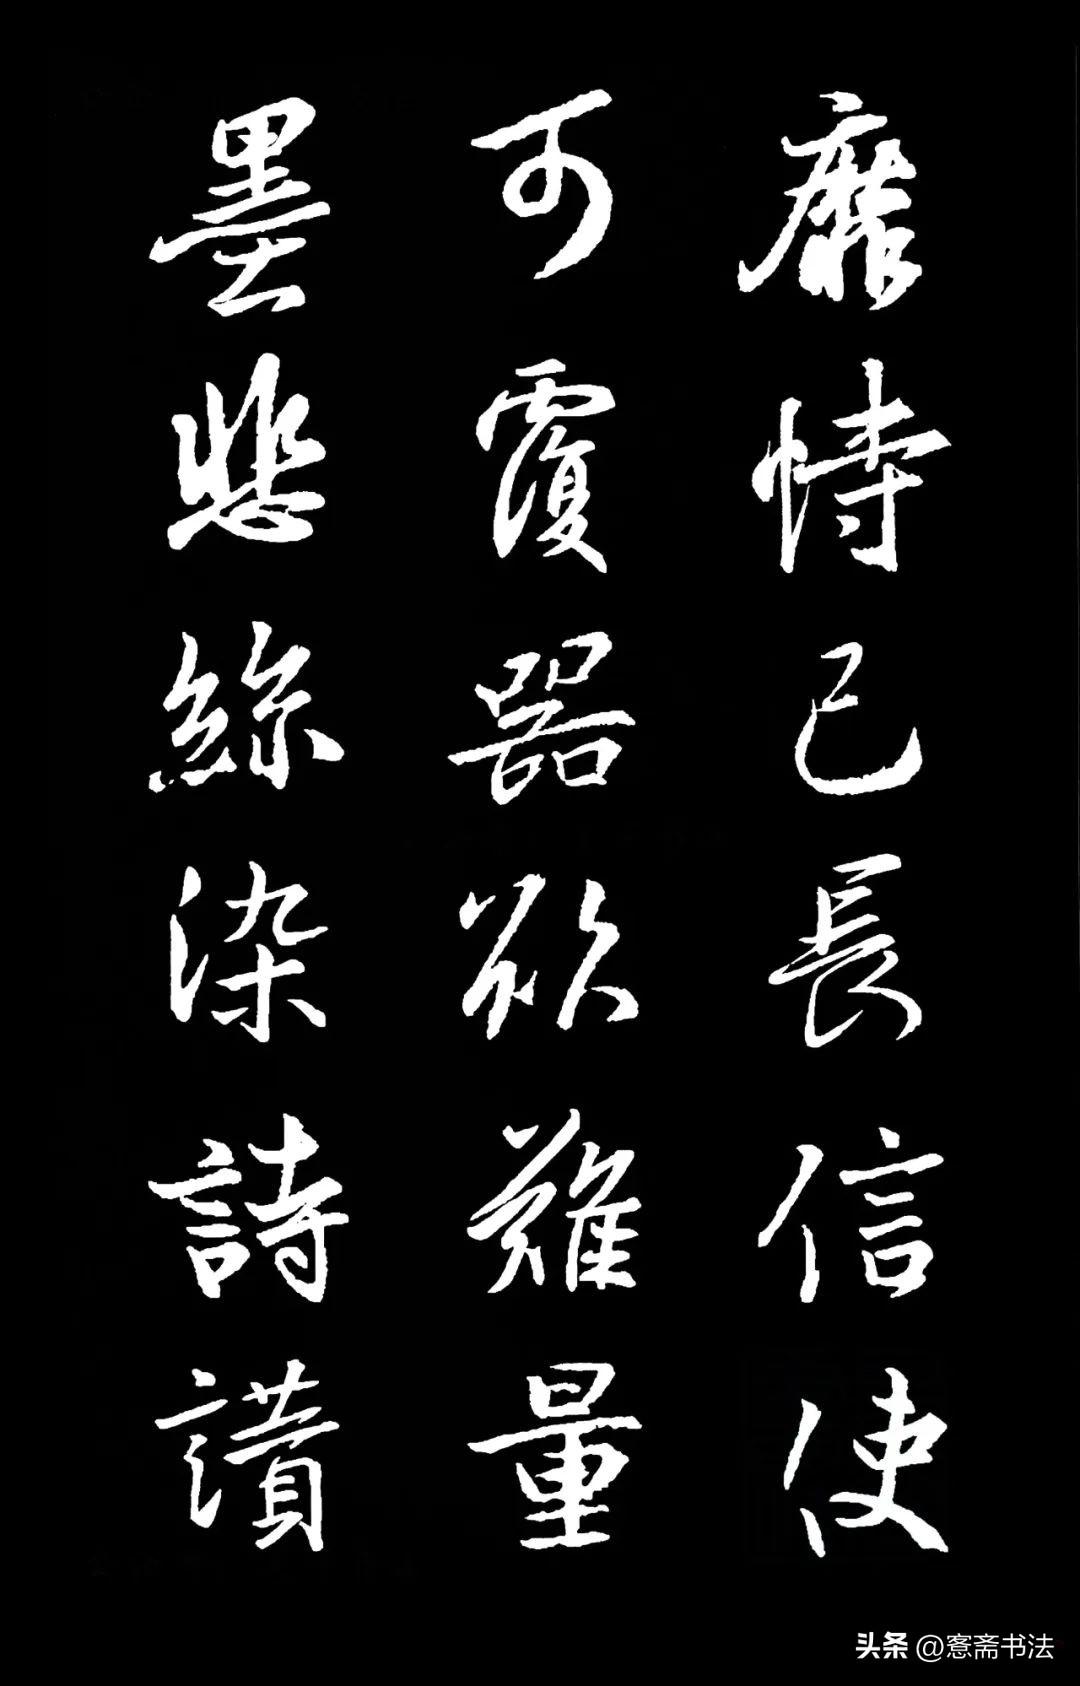 靡恃己長信使
可覆器欲難量
墨悲絲染詩讚
头条 @愙斋书法